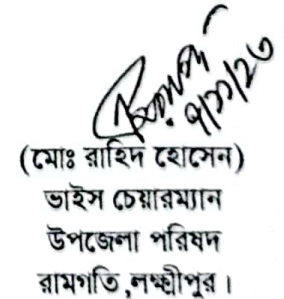 ৭/১১/২৩
(মোঃ রাহিদ হোসেন)
ভাইস চেয়ারম্যান
উপজেলা পরিষদ
রামগতি,লক্ষ্মীপুর।